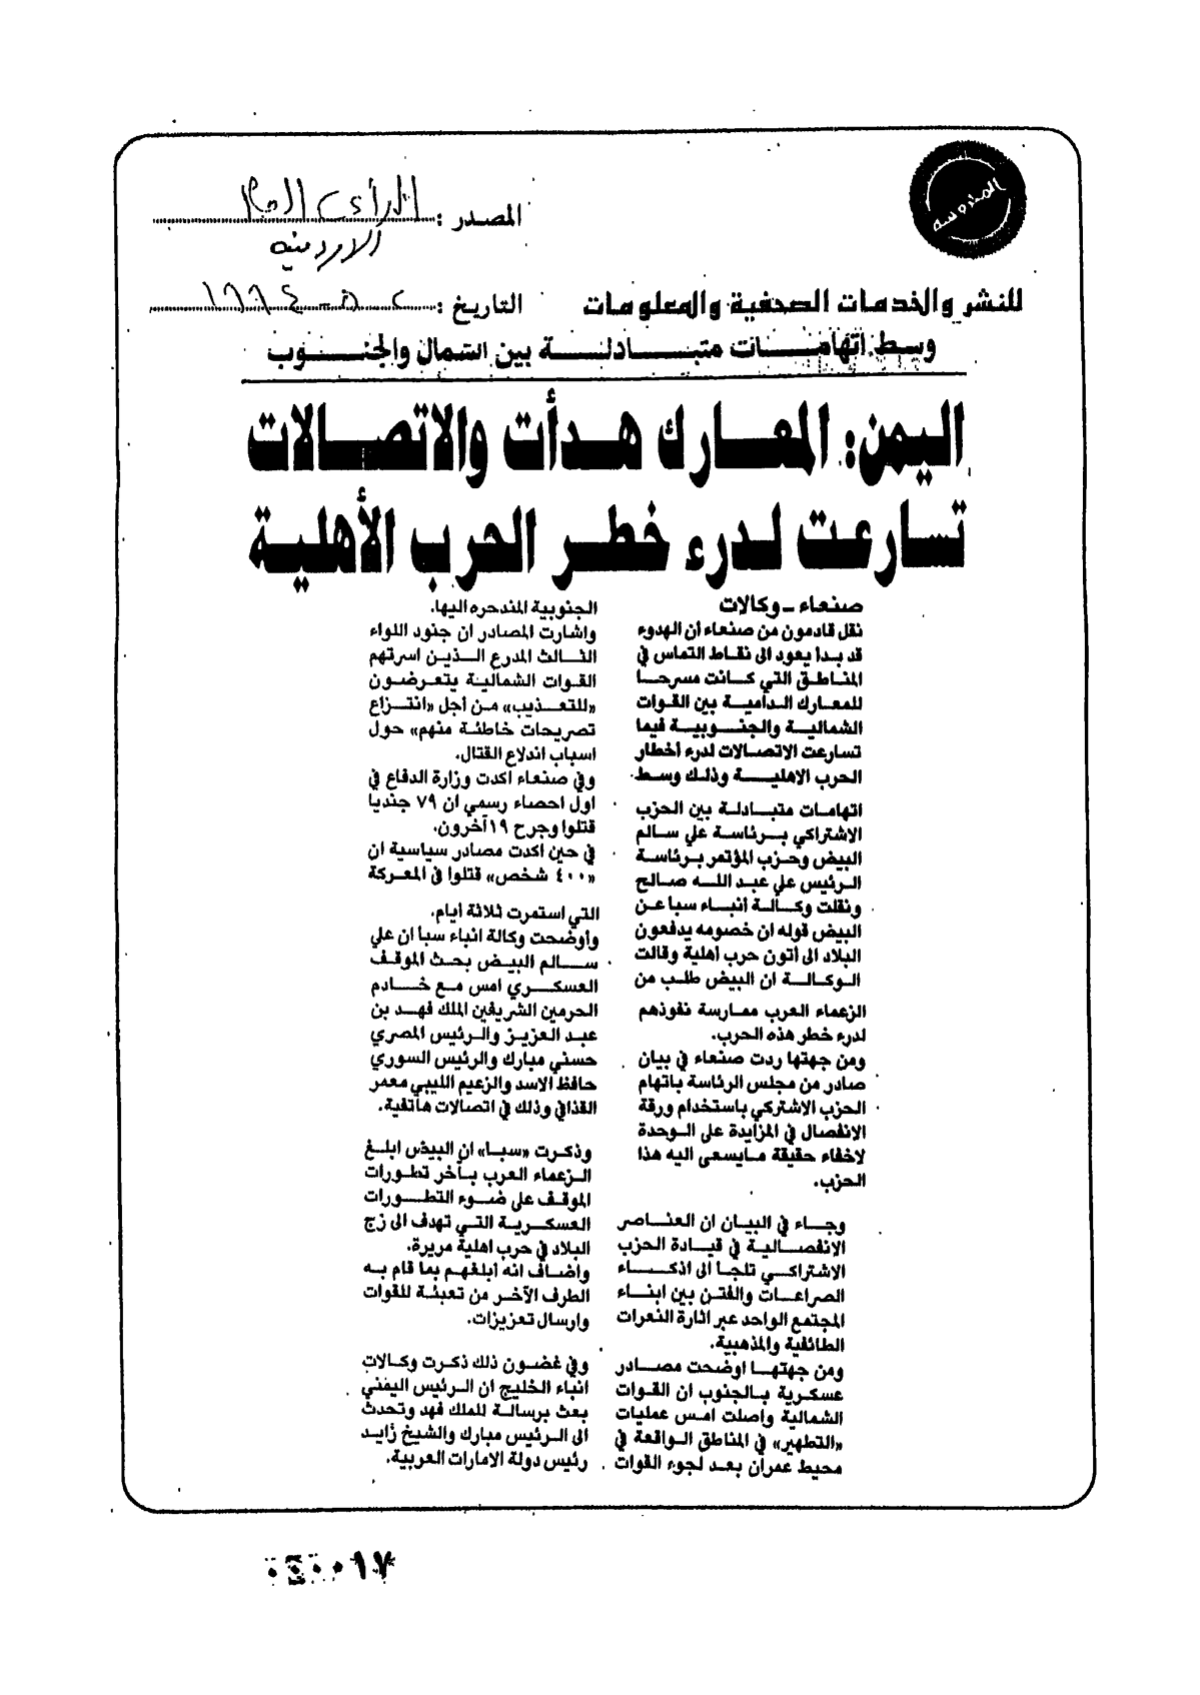 المحروسة
المصدر : الرأي العام
الاردنيه
للنشر والخدمات الصحفية والمعلومات
التاريخ : ٢-٥-١٩٩٤
وسط اتهامات متبادلة بين الشمال والجنوب
اليمن: المعارك هدأت والاتصالات
تسارعت لدرء خطر الحرب الأهلية
صنعاء - وكالات
نقل قادمون من صنعاء ان الهدوء
قد بدأ يعود الى نقاط التماس في
المناطق التي كانت مسرحا
للمعارك الدامية بين القوات
الشمالية والجنوبية فيما
تسارعت الاتصالات لدرء أخطار
الحرب الاهلية وذلك وسط
اتهامات متبادلة بين الحزب
الاشتراكي برئاسة علي سالم
البيض وحزب المؤتمر برئاسة
الرئيس علي عبد الله صالح
ونقلت وكالة أنباء سبا عن
البيض قوله ان خصومه يدفعون
البلاد الى أتون حرب أهلية وقالت
الوكالة ان البيض طلب من
الزعماء العرب ممارسة نفوذهم
لدرء خطر هذه الحرب.
ومن جهتها ردت صنعاء في بيان
صادر من مجلس الرئاسة باتهام
الحزب الاشتركي باستخدام ورقة
الانفصال في المزايدة على الوحدة
لاخفاء حقيقة مايسعى اليه هذا
الحزب.
وجاء في البيان ان العناصر
الانفصالية في قيادة الحزب
الاشتراكي تلجا الى اذكاء
الصراعات والفتن بين ابناء
المجتمع الواحد عبر اثارة النعرات
الطائفية والمذهبية.
ومن جهتها اوضحت مصادر
عسكرية بالجنوب ان القوات
الشمالية واصلت امس عمليات
«التطهير» في المناطق الواقعة في
محيط عمران بعد لجوء القوات
الجنوبية المندحره اليها.
واشارت المصادر ان جنود اللواء
الثالث المدرع الذين اسرتهم
القوات الشمالية يتعرضون
«للتعذيب» من أجل «انتزاع
تصريحات خاطئة منهم» حول
اسباب اندلاع القتال.
وفي صنعاء اكدت وزارة الدفاع في
اول احصاء رسمي ان ٧٩ جنديا
قتلوا وجرح ١٩ آخرون.
في حين اكدت مصادر سياسية ان
«٤٠٠ شخص» قتلوا في المعركة
التي استمرت ثلاثة أيام.
وأوضحت وكالة انباء سبا ان علي
سالم البيض بحث الموقف
العسكري امس مع خادم
الحرمين الشريفين الملك فهد بن
عبد العزيز والرئيس المصري
حسني مبارك والرئيس السوري
حافظ الاسد والزعيم الليبي معمر
القذافي وذلك في اتصالات هاتفية.
وذكرت «سبا» ان البيض ابلغ
الزعماء العرب بآخر تطورات
الموقف على ضوء التطورات
العسكرية التي تهدف الى زج
البلاد في حرب اهلية مريرة.
واضاف انه أبلغهم بما قام به
الطرف الآخر من تعبئة للقوات
وارسال تعزيزات.
وفي غضون ذلك ذكرت وكالات
انباء الخليج ان الرئيس اليمني
بعث برسالة للملك فهد وتحدث
الى الرئيس مبارك والشيخ زايد
رئيس دولة الامارات العربية.
٠٤٠٠١٧